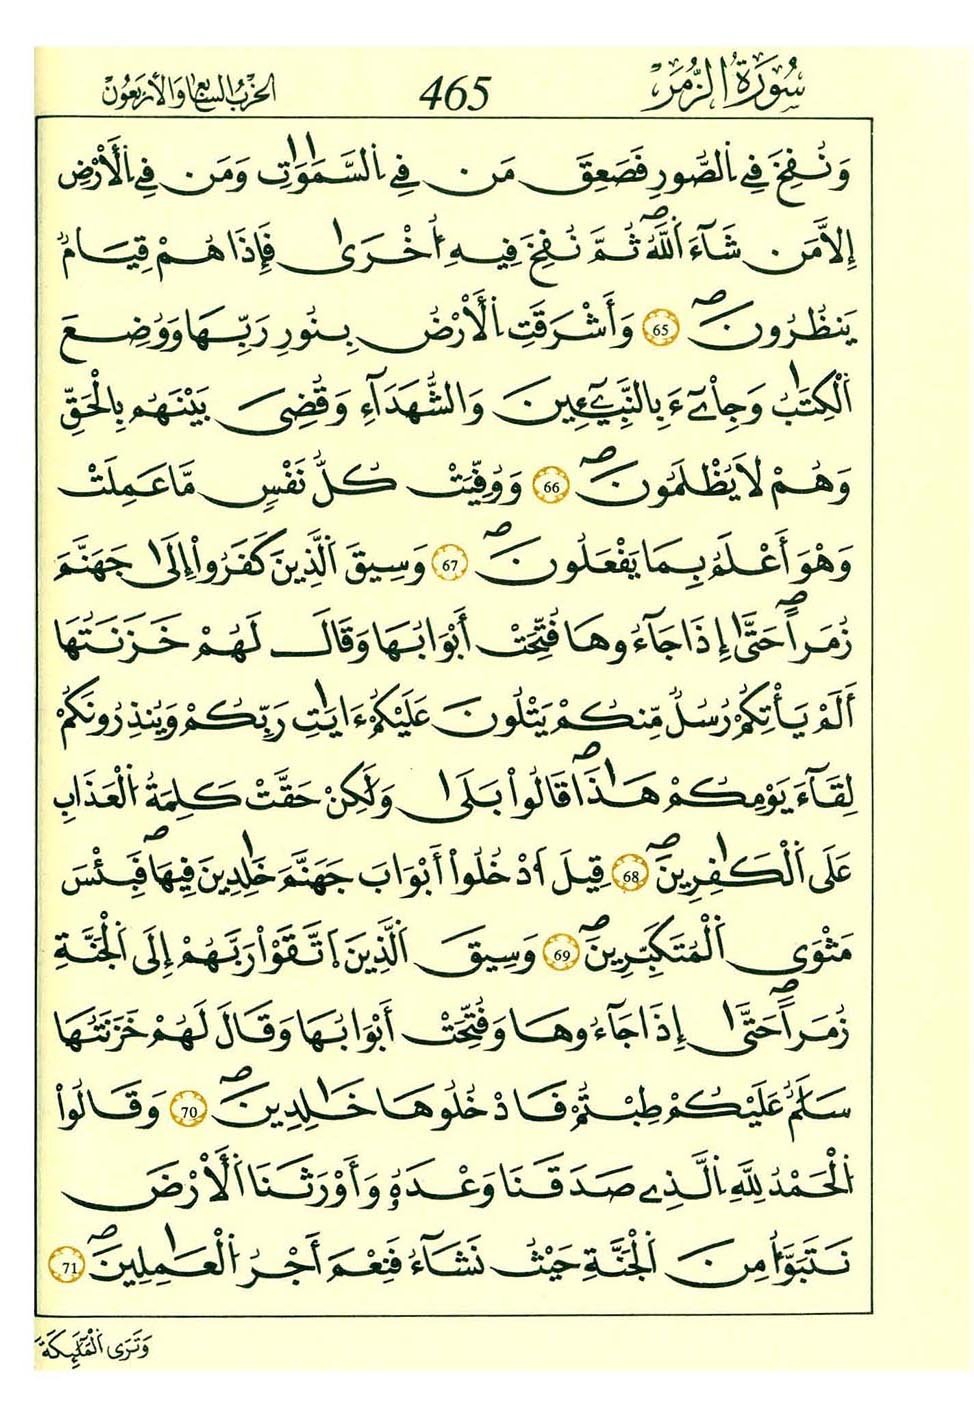 سُورَةُ الزُّمَرِ
465
الحِزْبُ السَّابِعُ وَالأَرْبَعُونَ
وَنُفِخَ فِے اِ۬لصُّورِ فَصَعِقَ مَن فِے اِ۬لسَّمَٰوَٰتِ وَمَن فِے اِ۬لَارْضِ
إِلَّا مَن شَآءَ اَ۬للَّهُۖ ثُمَّ نُفِخَ فِيهِ أُخْر۪يٰ فَإِذَا هُمْ قِيَامٞ
يَنظُرُونَۖ 65 وَأَشْرَقَتِ اِ۬لَارْضُ بِنُورِ رَبِّهَا وَوُضِعَ
اَ۬لْكِتَٰبُ وَجِاْےٓءَ بِالنَّبِيٓـِٕينَ وَالشُّهَدَآءِ وَقُضِيَ بَيْنَهُم بِالْحَقِّ
وَهُمْ لَا يُظْلَمُونَۖ 66 وَوُفِّيَتْ كُلُّ نَفْسٖ مَّا عَمِلَتْ
وَهْوَ أَعْلَمُ بِمَا يَفْعَلُونَۖ 67 وَسِيقَ اَ۬لذِينَ كَفَرُوٓاْ إِلَيٰ جَهَنَّمَ
زُمَراًۖ حَتَّيٰٓ إِذَا جَآءُوهَا فُتِّحَتَ اَبْوَٰبُهَا وَقَالَ لَهُمْ خَزَنَتُهَا
أَلَمْ يَأْتِكُمْ رُسُلٞ مِّنكُمْ يَتْلُونَ عَلَيْكُمُۥٓ ءَايَٰتِ رَبِّكُمْ وَيُنذِرُونَكُمْ
لِقَآءَ يَوْمِكُمْ هَٰذَاۖ قَالُواْ بَلَيٰ وَلَٰكِنْ حَقَّتْ كَلِمَةُ اُ۬لْعَذَابِ
عَلَي اَ۬لْكٰ۪فِرِينَۖ 68 قِيلَ اَ۟دْخُلُوٓاْ أَبْوَٰبَ جَهَنَّمَ خَٰلِدِينَ فِيهَاۖ فَبِئْسَ
مَثْوَي اَ۬لْمُتَكَبِّرِينَۖ 69 وَسِيقَ اَ۬لذِينَ اَ۪تَّقَوْاْ رَبَّهُمُۥٓ إِلَي اَ۬لْجَنَّةِ
زُمَراًۖ حَتَّيٰٓ إِذَا جَآءُوهَا وَفُتِّحَتَ اَبْوَٰبُهَا وَقَالَ لَهُمْ خَزَنَتُهَا
سَلَٰمٌ عَلَيْكُمْ طِبْتُمْ فَادْخُلُوهَا خَٰلِدِينَۖ 70 وَقَالُواْ
اُ۬لْحَمْدُ لِلهِ اِ۬لذِے صَدَقَنَا وَعْدَهُۥ وَأَوْرَثَنَا اَ۬لَارْضَ
نَتَبَوَّأُ مِنَ اَ۬لْجَنَّةِ حَيْثُ نَشَآءُ فَنِعْمَ أَجْرُ اُ۬لْعَٰمِلِينَۖ 71
وَتَرَي اَ۬لْمَلَٰٓئِكَةَ